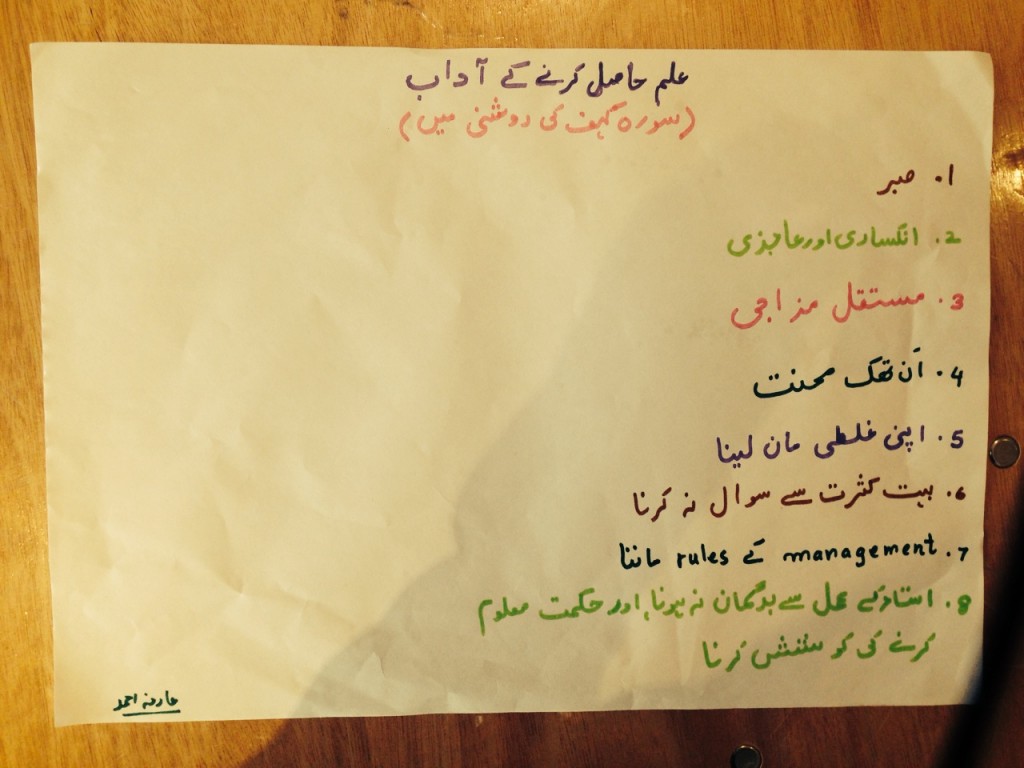 علم حاصل کرنے کے آداب
(سورہ کہف کی روشنی میں)
1. صبر
2. انکساری اور عاجزی
3. مستقل مزاجی
4. اَن تھک محنت
5. اپنی غلطی مان لینا
6. بہت کثرت سے سوال نہ کرنا
7. management کے rules ماننا
8. استاد کے عمل سے بدگمان نہ ہونا، اور حکمت معلوم
کرنے کی کوشش کرنا
عارفہ احمد